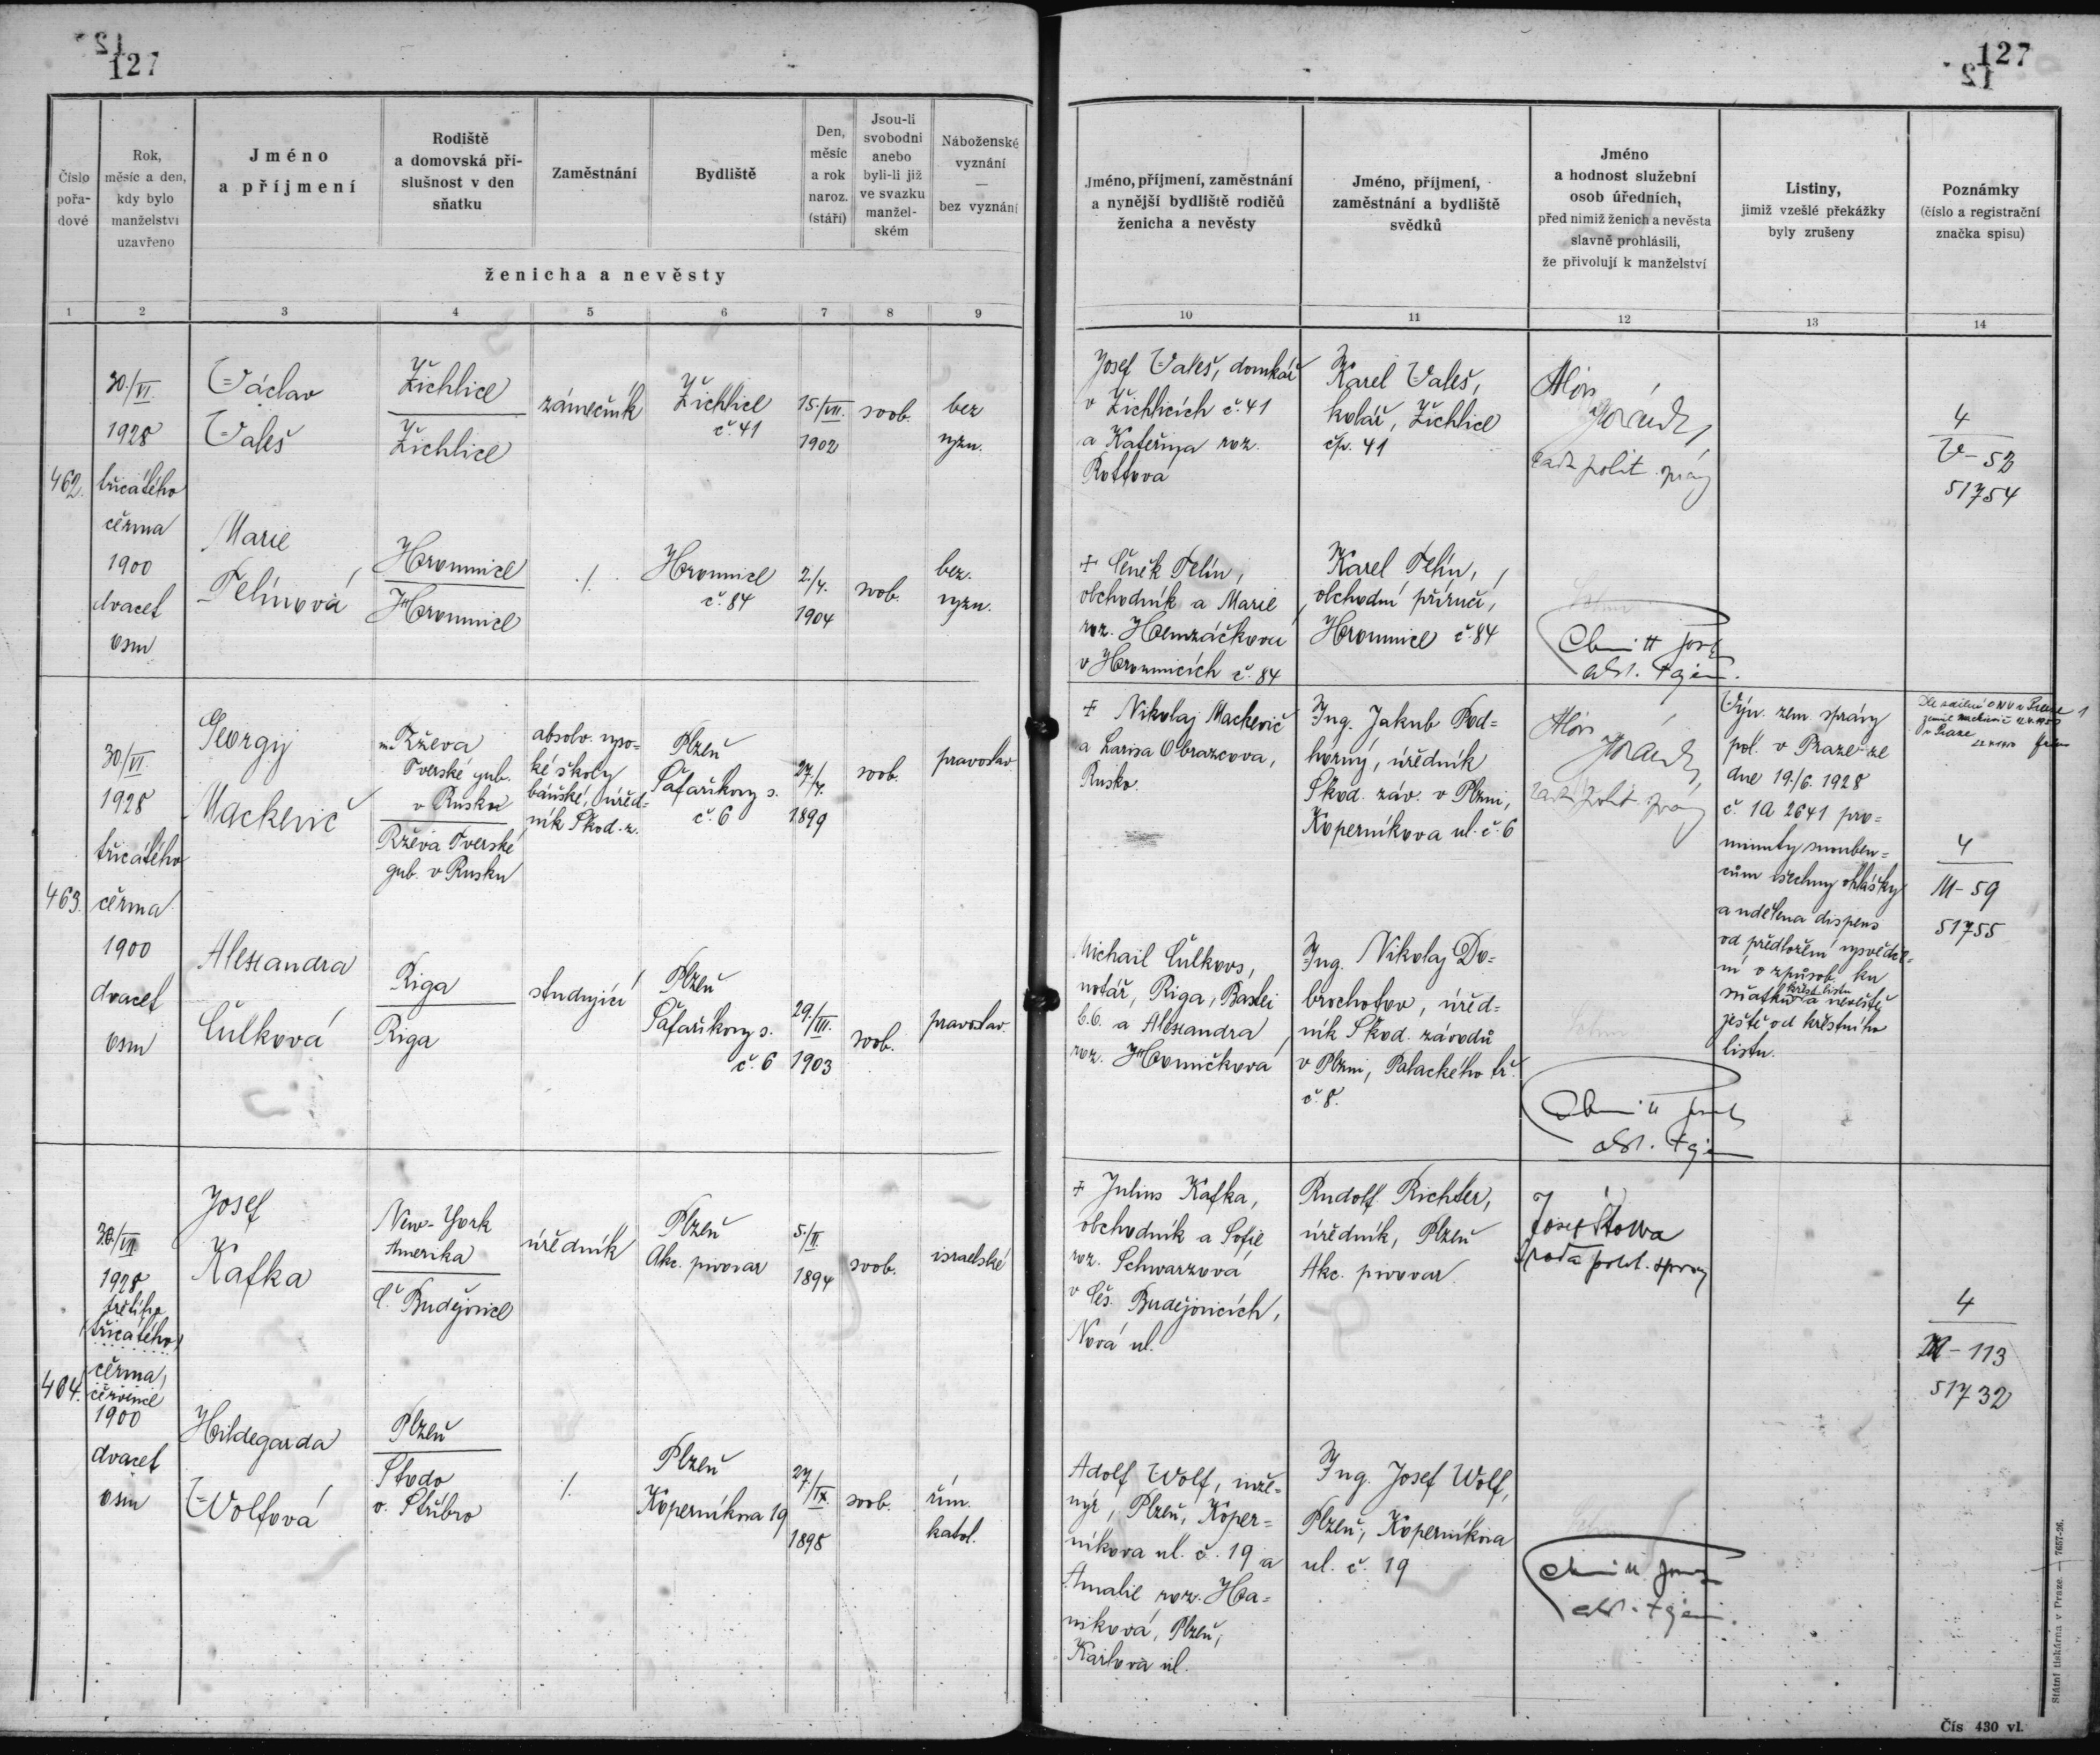 127
127
Číslo pořa-dové
Rok, měsíc a den, kdy bylo manželství uzavřeno
Jméno a příjmení
Rodiště a domovská pří-slušnost v den sňatku
Zaměstnání
Bydliště
Den, měsíc a rok naroz. (stáří)
Jsou-li svobodni anebo byli-li již ve svazku manžel-ském
Náboženské vyznání — bez vyznání
ženicha a nevěsty
Jméno, příjmení, zaměstnání a nynější bydliště rodičů ženicha a nevěsty
Jméno, příjmení, zaměstnání a bydliště svědků
Jméno a hodnost služební osob úředních, před nimiž ženich a nevěsta slavně prohlásili, že přivolují k manželství
Listiny, jimiž vzešlé překážky byly zrušeny
Poznámky (číslo a registrační značka spisu)
1 2 3 4 5 6 7 8 9 10 11 12 13 14
462.
30./VI.
1928
třicátého
června
1900
dvacet
osm
Václav
Valeš
Žichlice
Žichlice
zámečník
Žichlice
č. 41
15./VII.
1902
svob.
bez
vyzn.
Josef Valeš, domkář
v Žichlicích č. 41
a Kateřina roz.
Rottová
Karel Valeš,
kolář, Žichlice
čp. 41
Alois
rada polit. správy
4
V - 52
51754
Marie
Felínová
Hromnice
Hromnice
./.
Hromnice
č. 84
2./4.
1904
svob.
bez.
vyzn.
+ Čeněk Felín,
obchodník a Marie
roz.
v Hromnicích č. 84
Karel Felín,
obchodní příručí,
Hromnice č. 84
463.
30/VI.
1928
třicátého
června
1900
dvacet
osm
Georgij
Mackevič
m. Rževa
Tverské gub.
v Rusku
Rževa Tverské
gub. v Rusku
absolv. vyso=
ké školy
báňské, úřed=
ník Škod. z.
Plzeň
Šafaříkovy s.
č. 6
27./4.
1899
svob.
pravoslav.
+ Nikolaj Mackevič
a Larisa Obrazcova,
Rusko.
Ing. Jakub Pod=
horný, úředník
Škod. záv. v Plzni,
Koperníkova ul. č. 6
Alois
rada polit. správy
Výn. zem. správy
pol. v Praze ze
dne 19./6. 1928
č. 1A 2641 pro=
minuty snouben=
cům všechny ohlášky
a udělena dispens
od předložení vysvědče=
ní o způsob. ku
sňatku a nevěstě
ještě od křestního
listu.
4
M - 59
51755
Alexandra
Čulková
Riga
Riga
studující
Plzeň
Šafaříkovy s.
č. 6
29./III.
1903
svob.
pravoslav.
Michail Čulkovs,
notář, Riga, Bastei
b. 6. a Alexandra
roz.
Ing. Nikolaj Do=
brochotov, úřed=
ník Škod. závodů
v Plzni, Palackého tř.
č. 8.
464.
30/VII
1928
třetího
(třicátého)
června,
července
1900
dvacet
osm
Josef
Kafka
New-York
Amerika
Č. Budějovice
úředník
Plzeň
Akc. pivovar
5./II.
1894
svob.
israelské
+ Julius Kafka,
obchodník a Sofie
roz. Schwarzová
v Čes. Budějovicích,
Nová ul.
Rudolf Richter,
úředník, Plzeň
Akc. pivovar.
Josef
rada polit. správy
4
M - 113
51732
Hildegarda
Wolfová
Plzeň
Stodo
o. Stříbro
./.
Plzeň
Koperníkova 19
27./IX.
1898
svob.
řím.
katol.
Adolf Wolf, inže=
nýr, Plzeň, Koper=
níkova ul. č. 19 a
Amalie roz. Ha=
niková, Plzeň,
Karlova ul.
Ing. Josef Wolf,
Plzeň, Koperníkova
ul. č. 19
Státní tiskárna v Praze. — 7657-26.
Čís 430 vl.